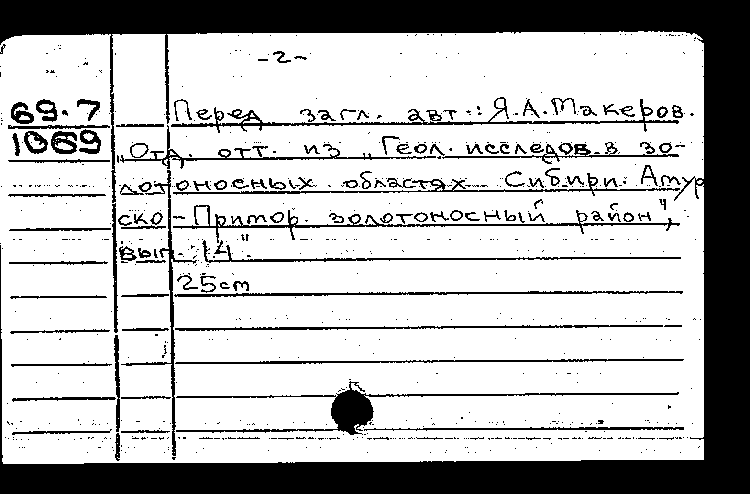 -2-
69.7 Перед загл. авт.: Я.А.Макеров.
1069
„Отд. отт. из „Геол. исследов. в зо-
лотоносных областях Сибири. Амур
ско-Примор. золотоносный район",
вып. 14".
25cm